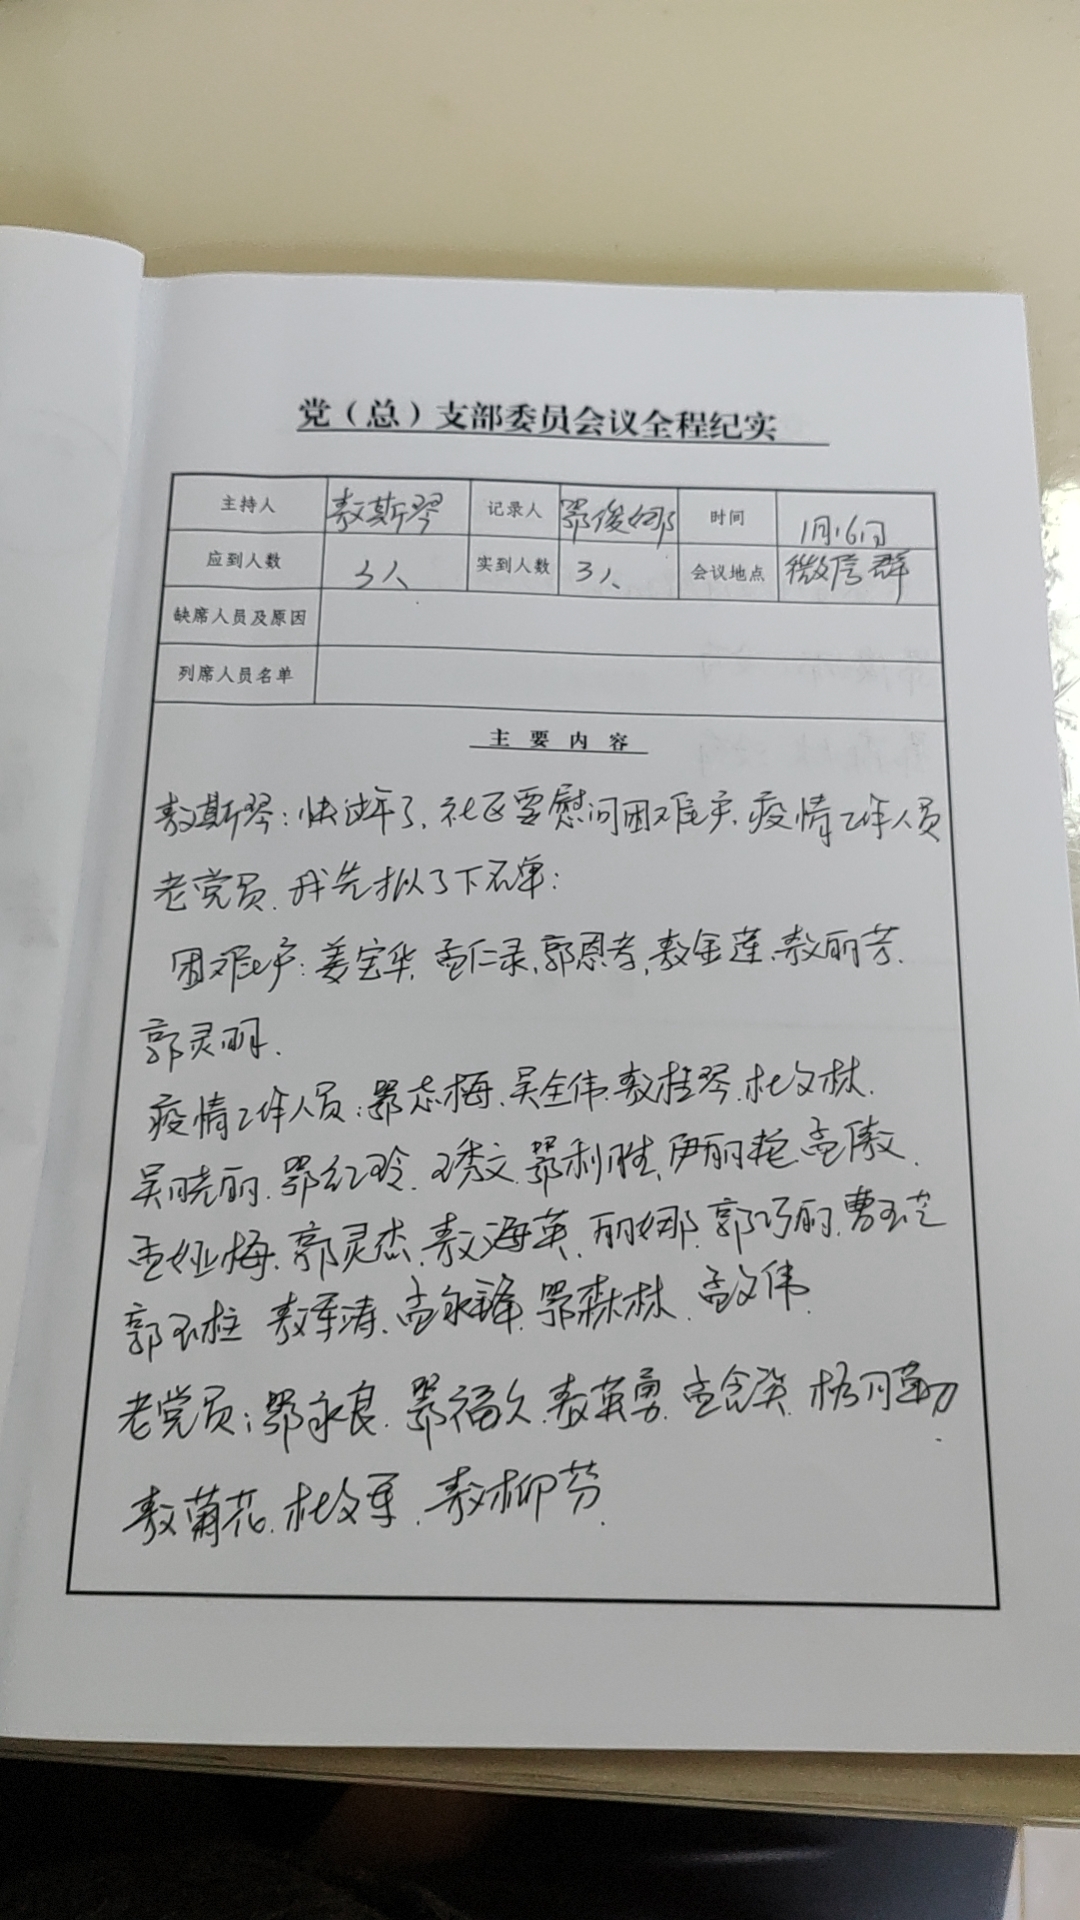 党（总）支部委员会议全程纪实
主持人 敖斯琴 记录人 鄂俊娜 时间 1月16日
应到人数 3人 实到人数 3人 会议地点 微信群
缺席人员及原因
列席人员名单
主要内容
敖斯琴：快过年了、社区要慰问困难户、疫情工作人员
老党员、我先拟了下名单：
困难户：姜宝华、孟仁录、郭恩孝、敖金莲、敖丽芳、
郭灵明、
疫情工作人员：鄂志梅、吴全伟、敖桂琴、杜文林、
吴晓丽、鄂红玲、王秀文、鄂利胜、伊丽艳、孟傲、
孟娅梅、郭灵杰、敖海英、丽娜、郭巧丽、曹玉芝
郭玉柱 敖军涛、孟永锋、鄂森林、孟文伟、
老党员：鄂永良、鄂福久、敖英勇、孟念
敖菊花、杜文军、敖柳芬、